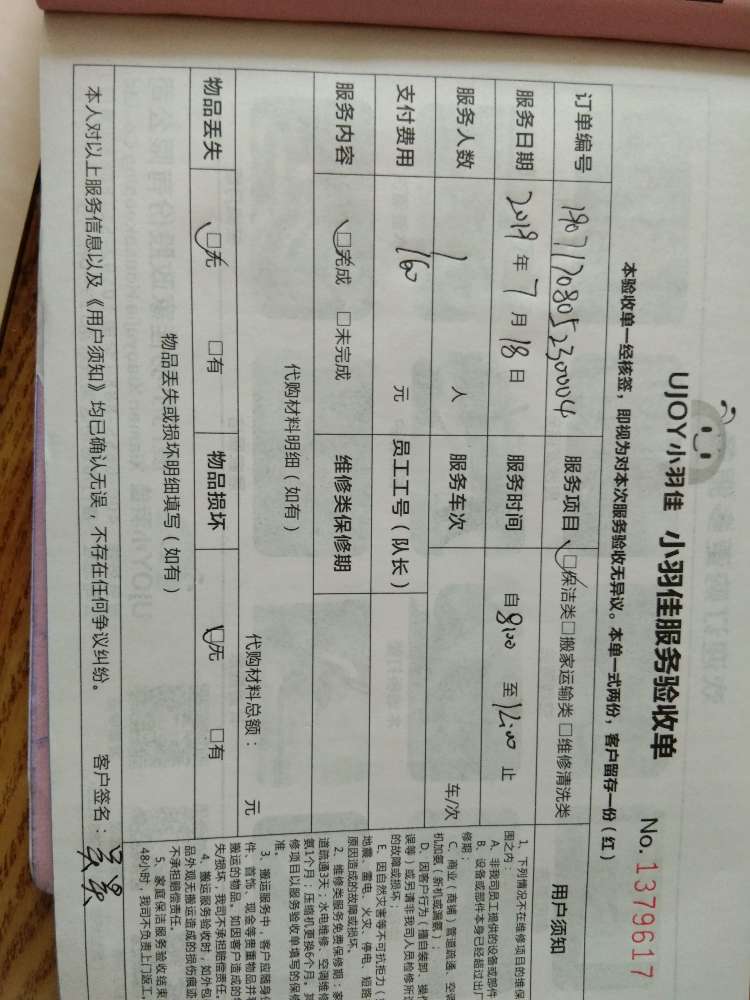 UJOY小羽佳 小羽佳服务验收单 No.1379617
本验收单一经核签，即视为对本次服务验收无异议。本单一式两份，客户留存一份（红）
订单编号 1907170805230004 服务项目 □保洁类□搬家运输类□维修清洗类
服务日期 2019年7月18日 服务时间 自8:00 至12:00 止
服务人数 1 人 服务车次 车/次
支付费用 160 元 员工工号（队长）
服务内容 □完成 □未完成 维修类保修期
代购材料明细（如有）
代购材料总额： 元
物品丢失 □无 □有 物品损坏 □无 □有
物品丢失或损坏明细填写（如有）
本人对以上服务信息以及《用户须知》均已确认无误，不存在任何争议纠纷。 客户签名：
用户须知
1、下列情况不在维修项目的维保
围之内：
A、非我司员工提供的设备或部件
B、设备或部件本身已经超过出厂
修期；
C、商业（商铺）管道疏通、空调
机加氨（新机或漏氨）；
D、因客户行为（擅自装卸、操作
误等）或另请非我司人员检修所造
的故障或损坏；
E、因自然灾害等不可抗拒力（
地震、雷电、火灾、停电、短路
原因造成的故障或损坏。
2、维修类服务免费保修期：家
道疏通3天；水电维修、空调维修
氨1个月；压缩机更换6个月。其
修项目以服务验收单填写的保修
准。
3、搬运服务中，客户应随身保
件、首饰、现金等贵重物品并有
搬运的物品。如因客户造成的
失/损坏，我司不承担赔偿责任。
4、搬运服务验收时，如外包
品外观无搬运造成的损伤痕迹
不承担赔偿责任。
5、家庭保洁服务验收结束
48小时，我司不负责上门返工。